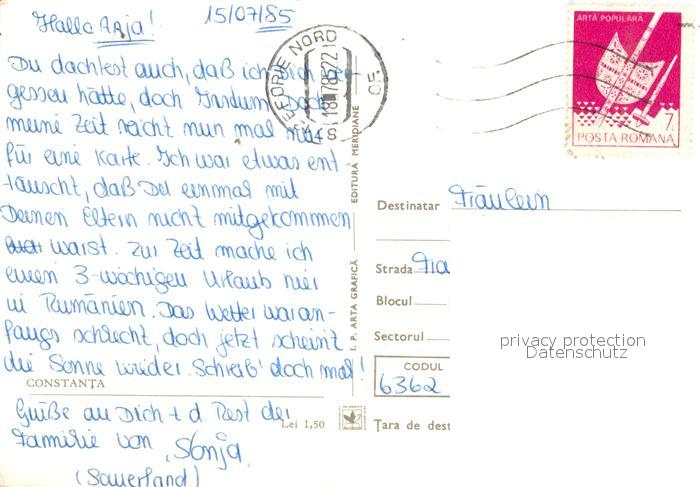 Hallo Anja!
15/07/85
Du dachtest auch, daß ich Dich ver-
gessen hätte, doch Irrdum, doch
meine Zeit reicht nun mal nur
für eine Karte. Ich war etwas ent-
täuscht, daß Du einmal mit
Deinen Eltern nicht mitgekommen
warst. Zur Zeit mache ich
einen 3-wöchigen Urlaub hier
in Rumänien. Das Wetter war an-
fangs schlecht, doch jetzt scheint
die Sonne wieder. Schreib' doch mal!
CONSTANȚA
Grüße an Dich + d. Rest der
Familie von Sonja
(Sauerland)
Lei 1,50
I. P. ARTA GRAFICĂ
EDITURA MERIDIANE
EFORIE NORD
ARTĂ POPULARĂ
7L
POSTA ROMANA
Destinatar Fräulein
Strada
Blocul
Sectorul
CODUL
6362
Țara de dest
privacy protection
Datenschutz